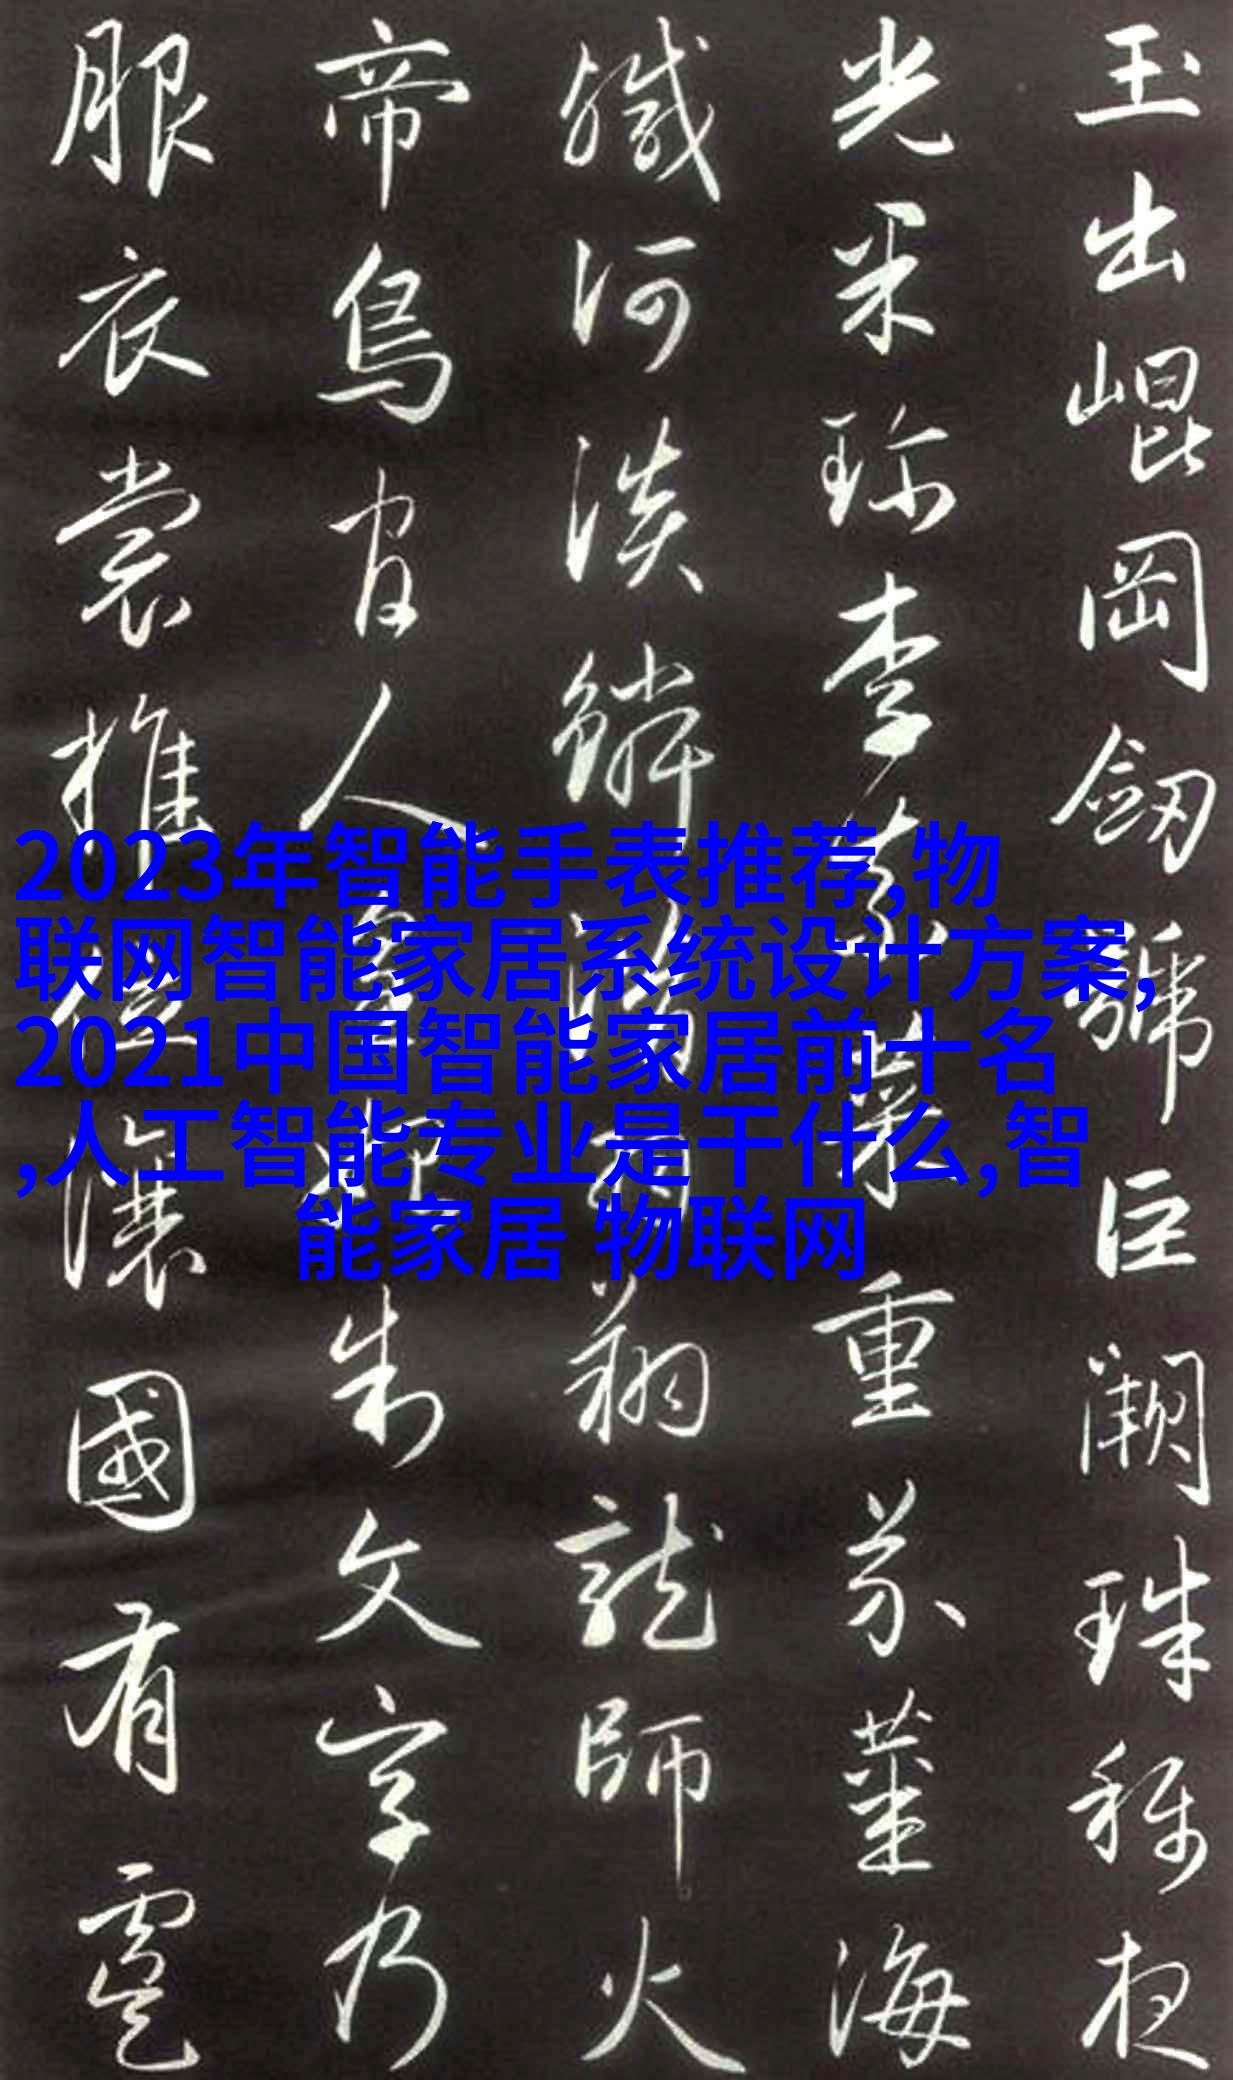 玉出崐岡劒號巨闕珠稱夜
光果珍李柰菜重芥薑海
鹹河淡鱗潛羽翔龍師火
帝鳥官人皇始制文字乃
服衣裳推位讓國有虞
2023年智能手表推荐,物
联网智能家居系统设计方案,
2021中国智能家居前十名
,人工智能专业是干什么,智
能家居 物联网